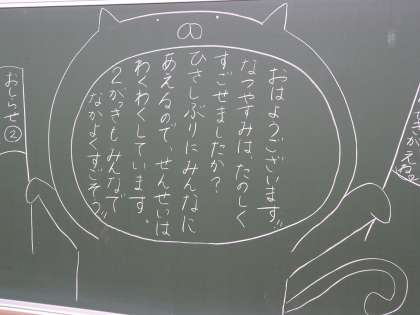 おはようございます!!
なつやすみは、たのしく
すごせましたか?
ひさしぶりにみんなに
あえるので、せんせいは
わくわくしています。
2がっきもみんなで
なかよくすごそう!!
おしらせ②